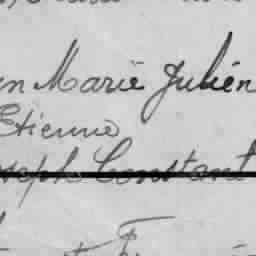 en Marie Julien
Etienne
seph Constant